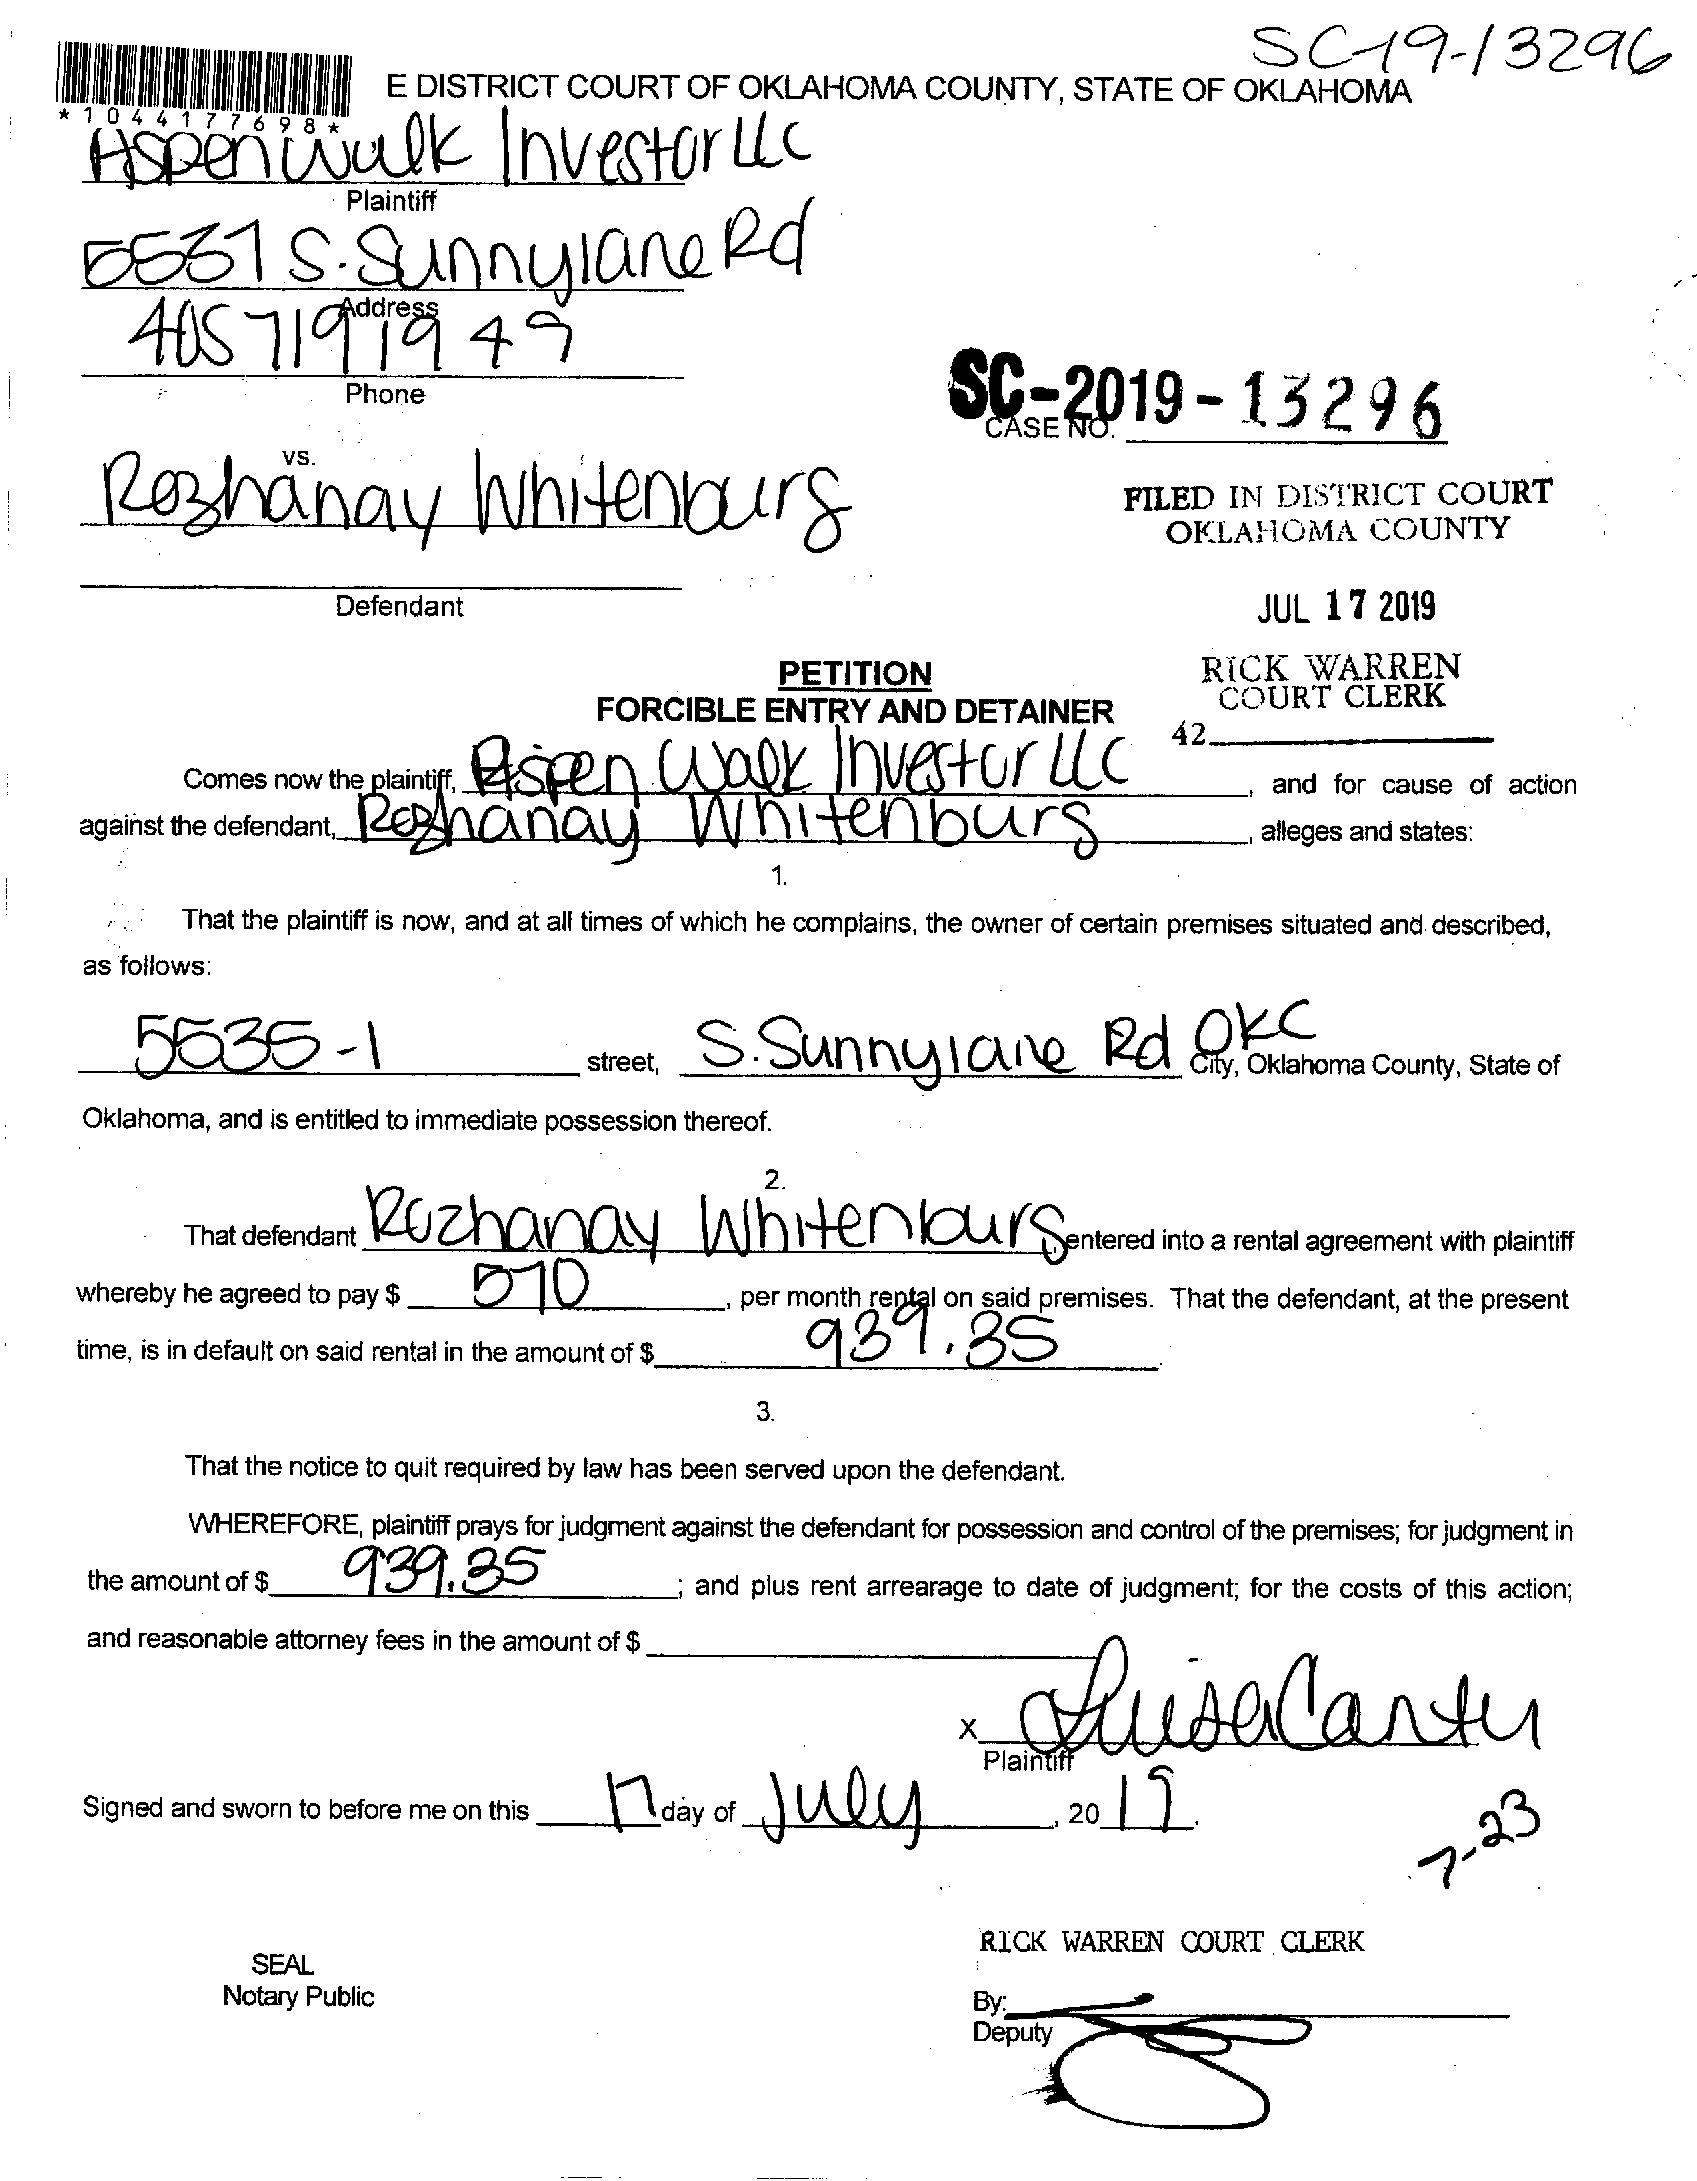 SC-19-13296
E DISTRICT COURT OF OKLAHOMA COUNTY, STATE OF OKLAHOMA
*1044177698*
Aspen Walk Investor LLC
Plaintiff
5537 S. Sunnylane Rd
Address
405 719 1949
Phone
SC-2019-13296
CASE NO.
vs.
Rozhanay Whitenburg
FILED IN DISTRICT COURT
OKLAHOMA COUNTY
Defendant
JUL 17 2019
RICK WARREN
COURT CLERK
42
PETITION
FORCIBLE ENTRY AND DETAINER
Comes now the plaintiff, Aspen Walk Investor LLC, and for cause of action
against the defendant, Rozhanay Whitenburg, alleges and states:
1.
That the plaintiff is now, and at all times of which he complains, the owner of certain premises situated and described,
as follows:
5535-1 street, S. Sunnylane Rd OKC City, Oklahoma County, State of
Oklahoma, and is entitled to immediate possession thereof.
2.
That defendant Rozhanay Whitenburg entered into a rental agreement with plaintiff
whereby he agreed to pay $ 570, per month rental on said premises. That the defendant, at the present
time, is in default on said rental in the amount of $ 939.35
3.
That the notice to quit required by law has been served upon the defendant.
WHEREFORE, plaintiff prays for judgment against the defendant for possession and control of the premises; for judgment in
the amount of $ 939.35; and plus rent arrearage to date of judgment; for the costs of this action;
and reasonable attorney fees in the amount of $
x Luisa Cantu
Plaintiff
Signed and sworn to before me on this 17 day of July, 2019.
7-23
RICK WARREN COURT CLERK
SEAL
Notary Public
By:
Deputy